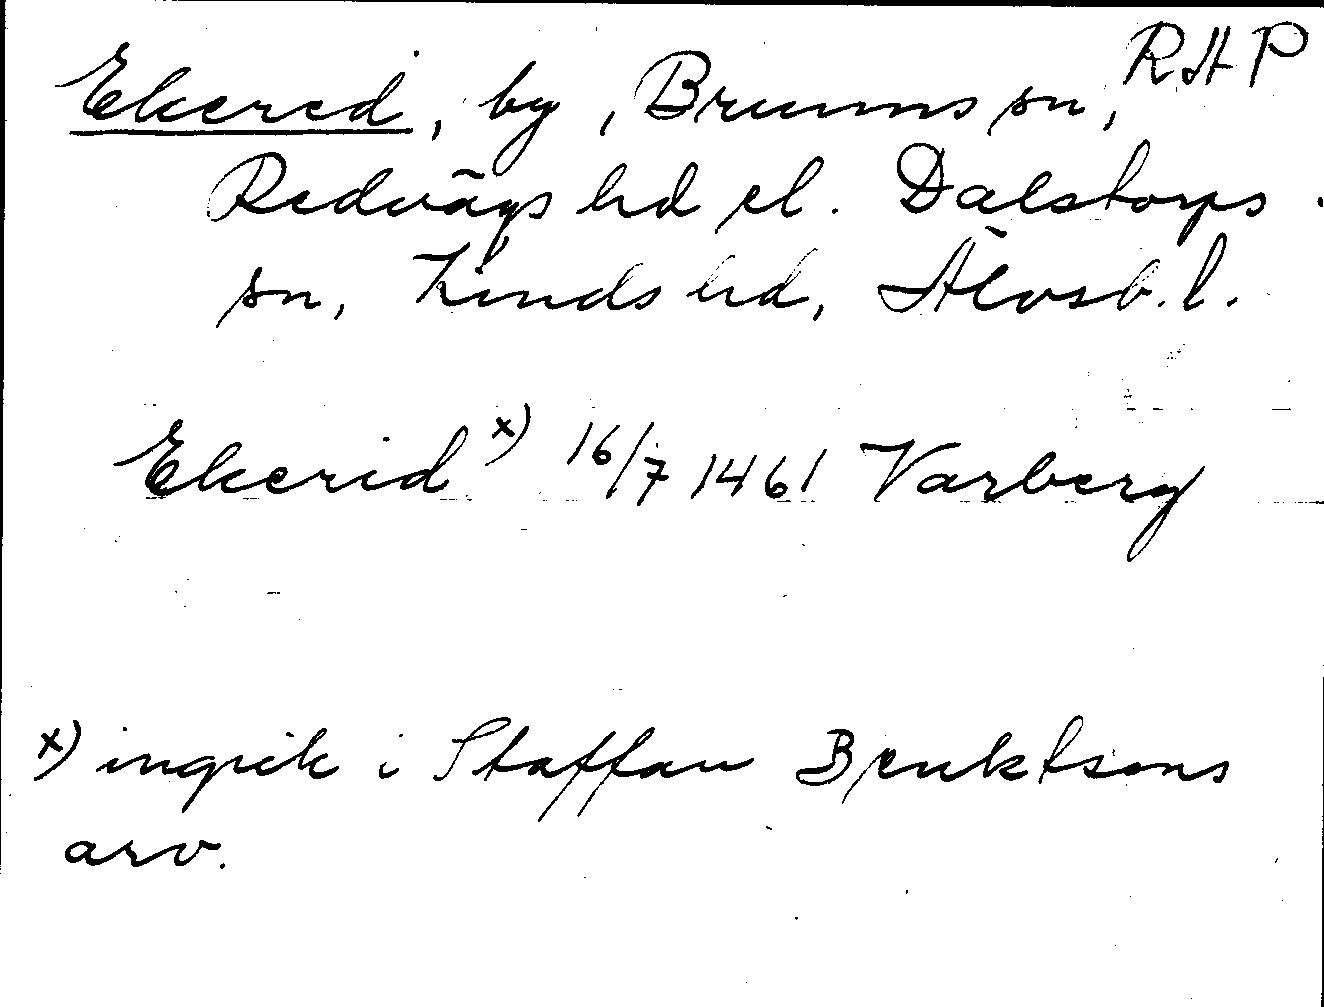 RAP
Ekered, by, Brunns sn,
Redvägs hd el. Dalstorps
sn, Kinds hd, Älvsb. l.
Ekerid x) 16/7 1461 Varberg
x) ingick i Staffan Benktsons
arv.